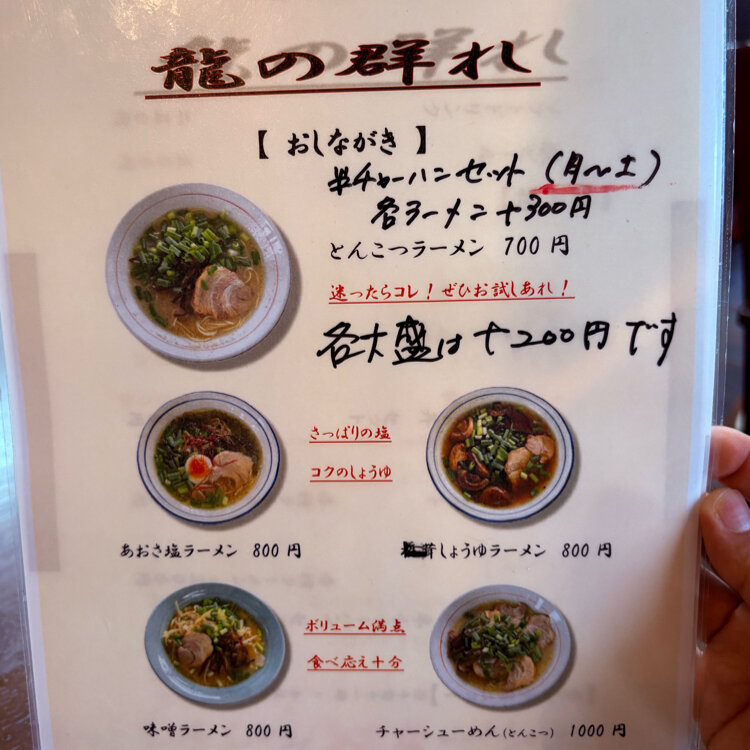 龍の群れ
【 おしながき 】
半チャーハンセット (月〜土)
各ラーメン+300円
とんこつラーメン 700 円
迷ったらコレ！ぜひお試しあれ！
各大盛は+200円です
さっぱりの塩
コクのしょうゆ
あおさ塩ラーメン 800 円
茸しょうゆラーメン 800 円
ボリューム満点
食べ応え十分
味噌ラーメン 800 円
チャーシューめん(とんこつ) 1000 円